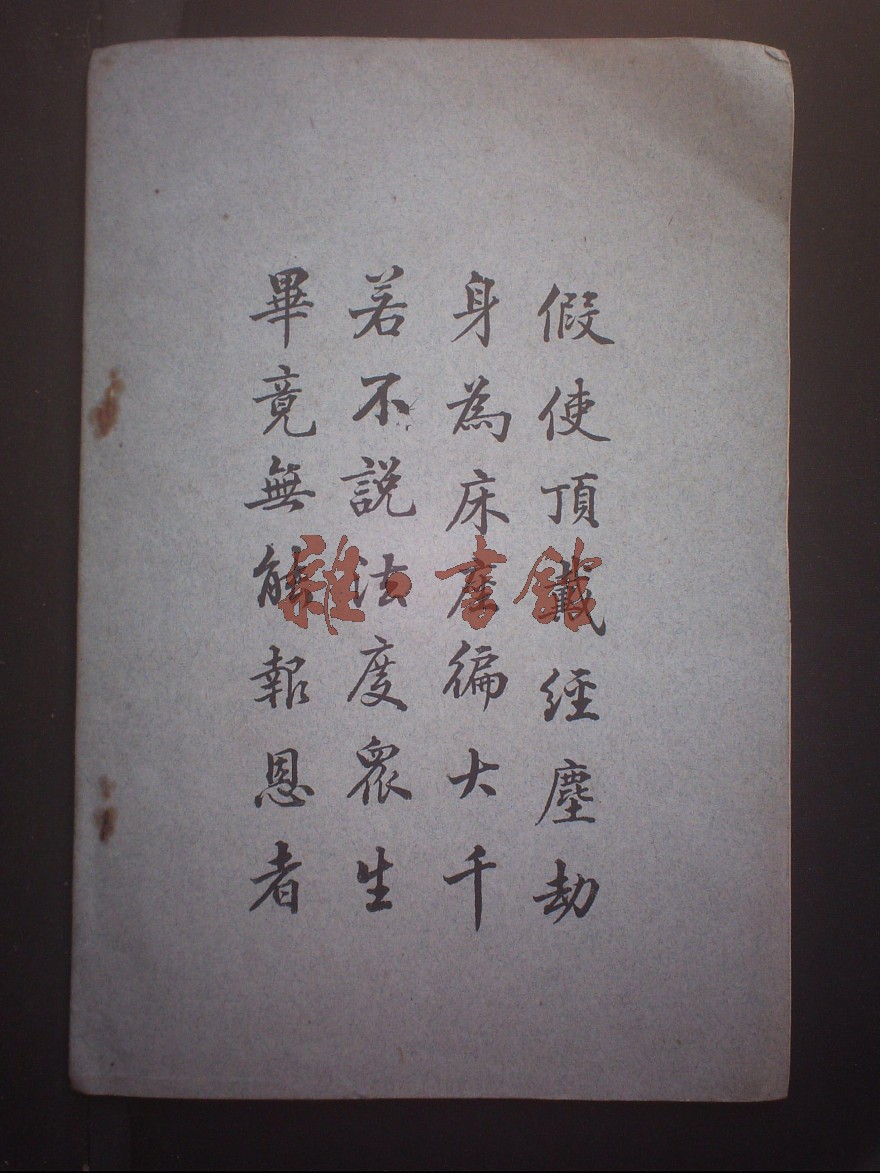 假使頂戴經塵劫
身為床座徧大千
若不説法度眾生
畢竟無能報恩者
雜·書館